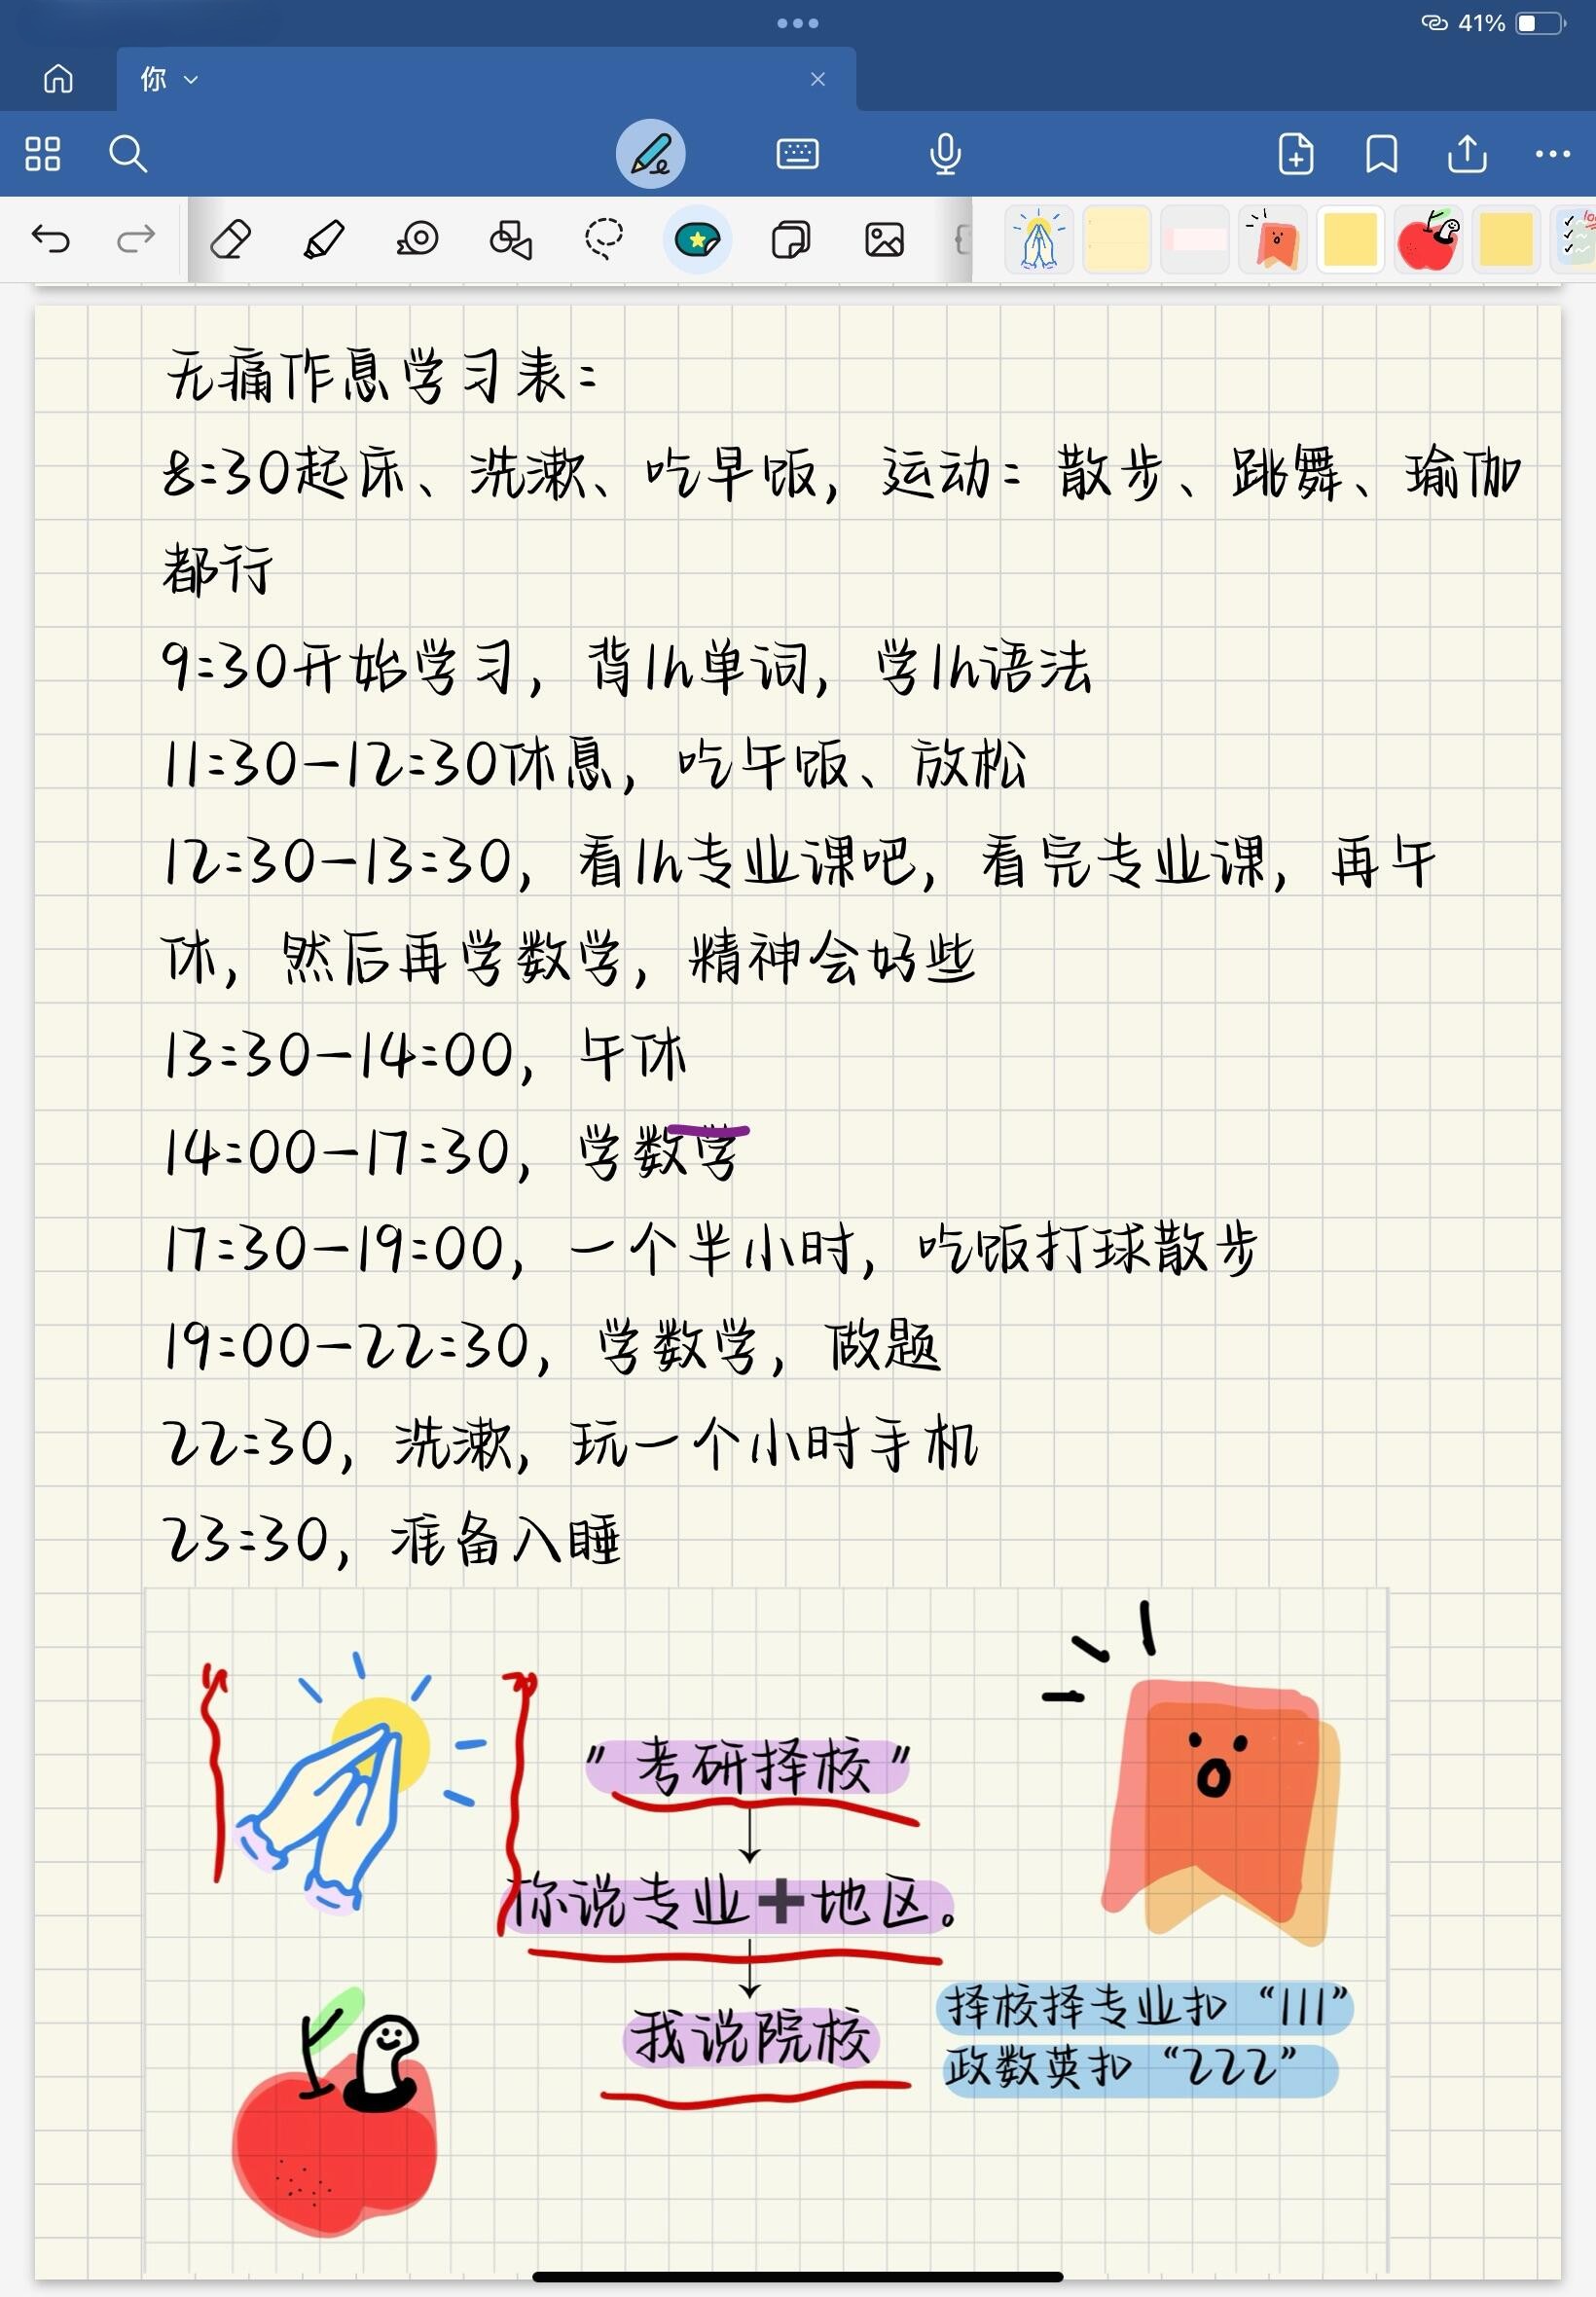 41%
你
无痛作息学习表：
8:30起床、洗漱、吃早饭，运动：散步、跳舞、瑜伽
都行
9:30开始学习，背1h单词，学1h语法
11:30-12:30休息，吃午饭、放松
12:30-13:30，看1h专业课吧，看完专业课，再午
休，然后再学数学，精神会好些
13:30-14:00，午休
14:00-17:30，学数学
17:30-19:00，一个半小时，吃饭打球散步
19:00-22:30，学数学，做题
22:30，洗漱，玩一个小时手机
23:30，准备入睡
"考研择校"
你说专业➕地区。
我说院校
择校择专业扣“111”
政数英扣“222”